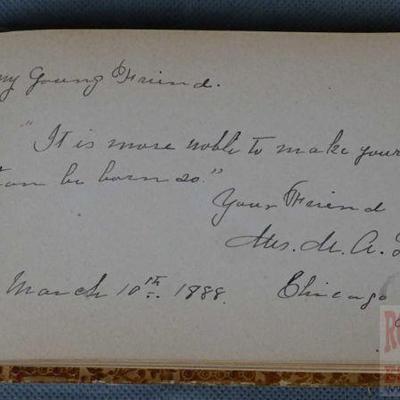 my Young Friend.
"It is more noble to make your
than be born so."
Your Friend
Mrs. M. A.
March 10th 1888. Chicago